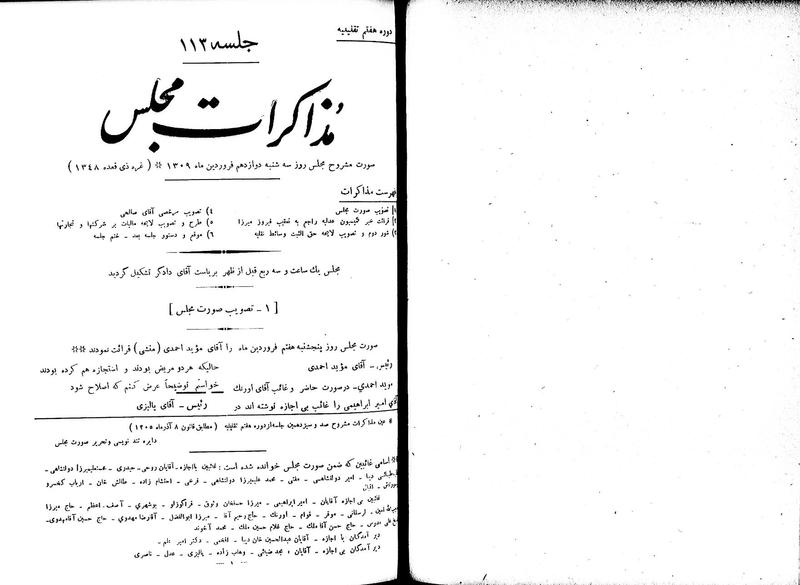 دوره هفتم تقنینیه
جلسه ۱۱۳
مذاکرات مجلس
صورت مشروح مجلس روز سه شنبه دوازدهم فروردین ماه ۱۳۰۹ * (غره ذی قعده ۱۳۴۸)
فهرست مذاکرات
۱) تصویب صورت مجلس
۲) قرائت خبر کمیسیون عدلیه راجع به تعقیب فیروز میرزا
۳) شور دوم و تصویب لایحه حق الثبت وسائط نقلیه
۴) تصویب مرخصی آقای صالحی
۵) طرح و تصویب لایحه مالیات بر شرکتها و تجارتها
۶) موقع و دستور جلسه بعد - ختم جلسه
مجلس یك ساعت و سه ربع قبل از ظهر بریاست آقای دادگر تشکیل گردید
[ ۱ - تصویب صورت مجلس ]
صورت مجلس روز پنجشنبه هفتم فروردین ماه را آقای مؤید احمدی (منشی) قرائت نمودند **
رئیس - آقای مؤید احمدی
مؤید احمدی - درصورت حاضر و غائب آقای اورنك
آقای امیر ابراهیمی را غائب بی اجازه نوشته اند در
حالیکه هردو مریض بودند و استجازه هم کرده بودند
خواستم توضیحاً عرض کنم که اصلاح شود
رئیس - آقای یالیزی
* عین مذاکرات مشروح صد و سیزدهمین جلسه از دوره هفتم تقنینیه (مطابق قانون ۸ آذرماه ۱۳۰۵)
دایره تند نویسی و تحریر صورت مجلس
** اسامی غائبین که ضمن صورت مجلس خوانده شده است: غائبین بااجازه - آقایان روحی - حیدری - عصمت‌علیمیرزا دولتشاهی -
طباطبائی دیبا - امیر دولتشاهی - مفتی - محمد علیمیرزا دولتشاهی - فرخی - احتشام زاده - طالش خان - ارباب کیخسرو
اقبال
غائبین بی اجازه آقایان - امیر ابراهیمی - میرزا حسنخان وثوق - قراگوزلو - بوشهری - آصف - اعظم - حاج میرزا
حبیب الله امین - ارسطائی - موقر - قوام - اورنك - حاج رحیم آقا - میرزا ابوالفضل - آقارضا مهدوی - حاج حسین آقا مهدوی -
حاج حسن آقا ملك - حاج غلام حسین ملك - محمد آخوند
دیر آمدگان با اجازه - آقایان عبدالحسین خان دیبا - افخمی - دکتر امیر اعلم -
دیر آمدگان بی اجازه - آقایان، مجد ضیائی - وهاب زاده - یالیزی - عدل - ناصری
- ۱ -